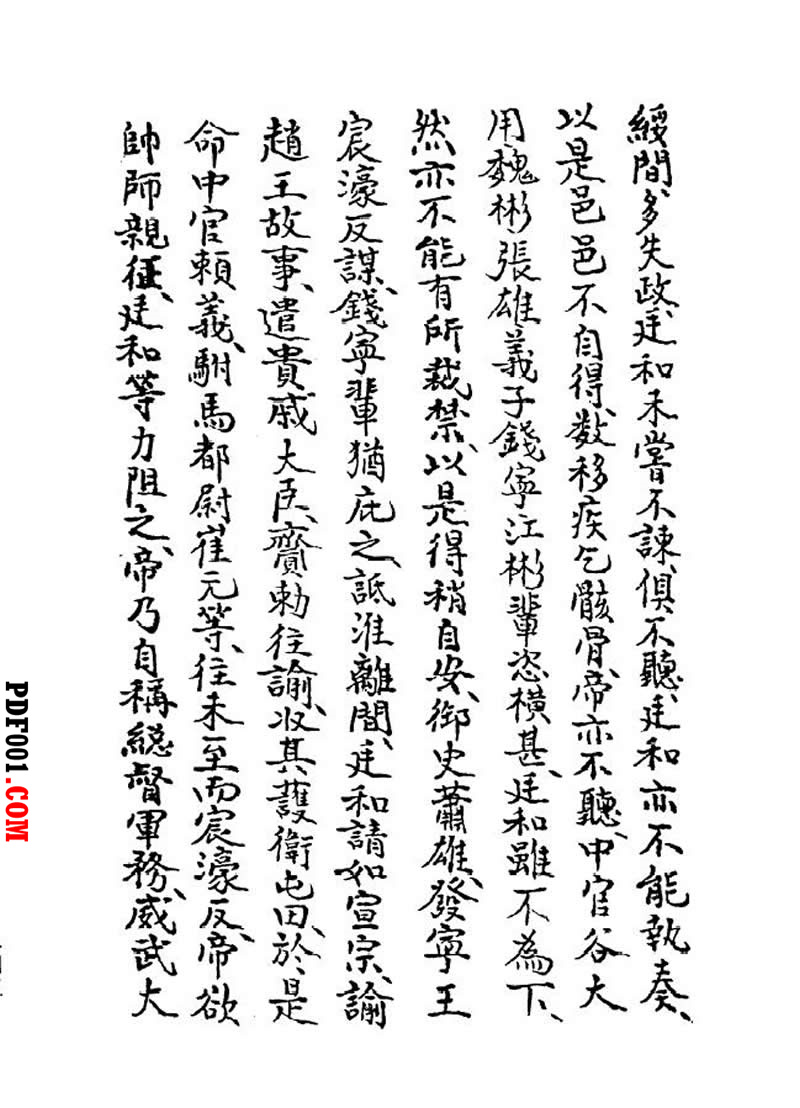 綏間、多失政、廷和未嘗不諫、俱不聽、廷和亦不能執奏、
以是邑邑不自得、数移疾乞骸骨、帝亦不聽、中官谷大
用、魏彬、張雄、義子錢寧、江彬輩恣横甚、廷和雖不為下、
然亦不能有所裁禁、以是得稍自安、御史蕭雄、發寧王
宸濠反謀、錢寧輩猶庇之、詆淮離間、廷和請如宣宗、諭
趙王故事、遣貴戚大臣、齎勅往諭、收其護衛屯田、於是
命中官頼義、駙馬都尉崔元等、往未至而宸濠反、帝欲
帥師親征、廷和等力阻之、帝乃自稱總督軍務、威武大
PDF001.COM